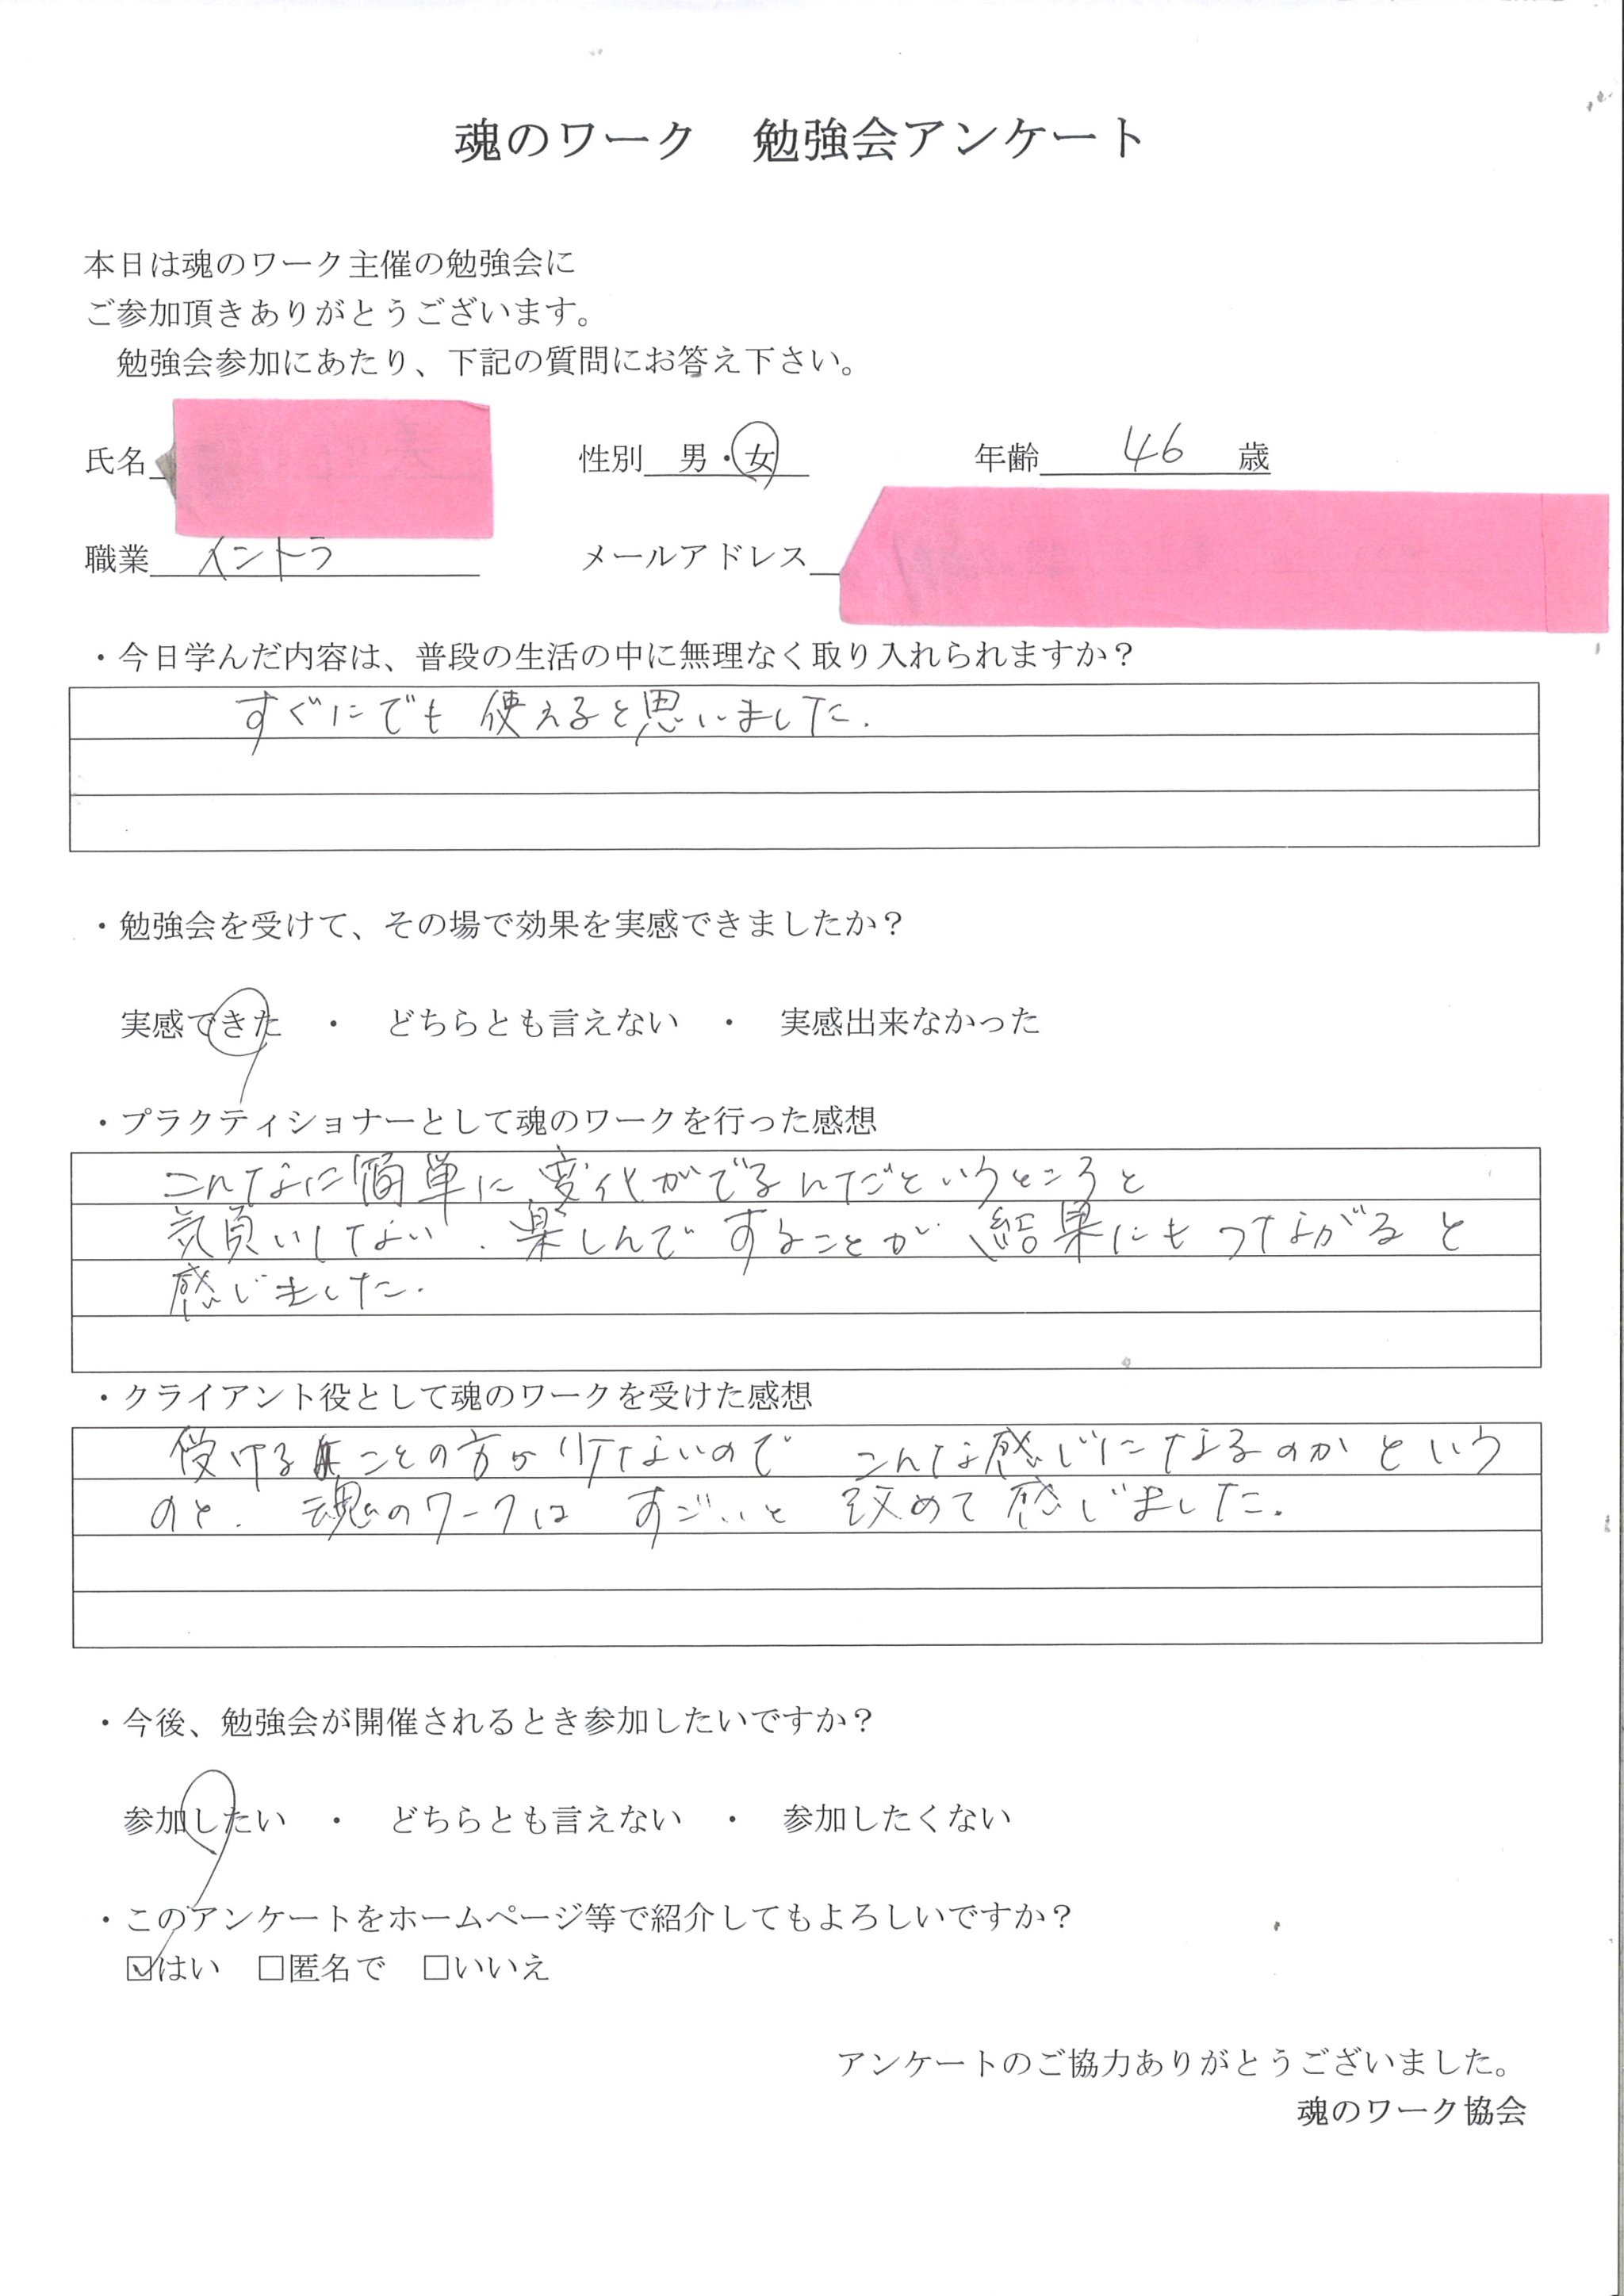 魂のワーク　勉強会アンケート
本日は魂のワーク主催の勉強会に
ご参加頂きありがとうございます。
勉強会参加にあたり、下記の質問にお答え下さい。
氏名　性別　男・女　年齢　46　歳
職業　イントラ　メールアドレス
・今日学んだ内容は、普段の生活の中に無理なく取り入れられますか？
すぐにでも使えると思いました.
・勉強会を受けて、その場で効果を実感できましたか？
実感できた　・　どちらとも言えない　・　実感出来なかった
・プラクティショナーとして魂のワークを行った感想
こんなに簡単に変化がでるんだというところと
気負いしない、楽しんですることが結果にもつながると
感じました.
・クライアント役として魂のワークを受けた感想
受けることの方が少ないので　こんな感じになるのかという
のと、魂のワークは　すごいと　改めて感じました.
・今後、勉強会が開催されるとき参加したいですか？
参加したい　・　どちらとも言えない　・　参加したくない
・このアンケートをホームページ等で紹介してもよろしいですか？
☑はい　□匿名で　□いいえ
アンケートのご協力ありがとうございました。
魂のワーク協会